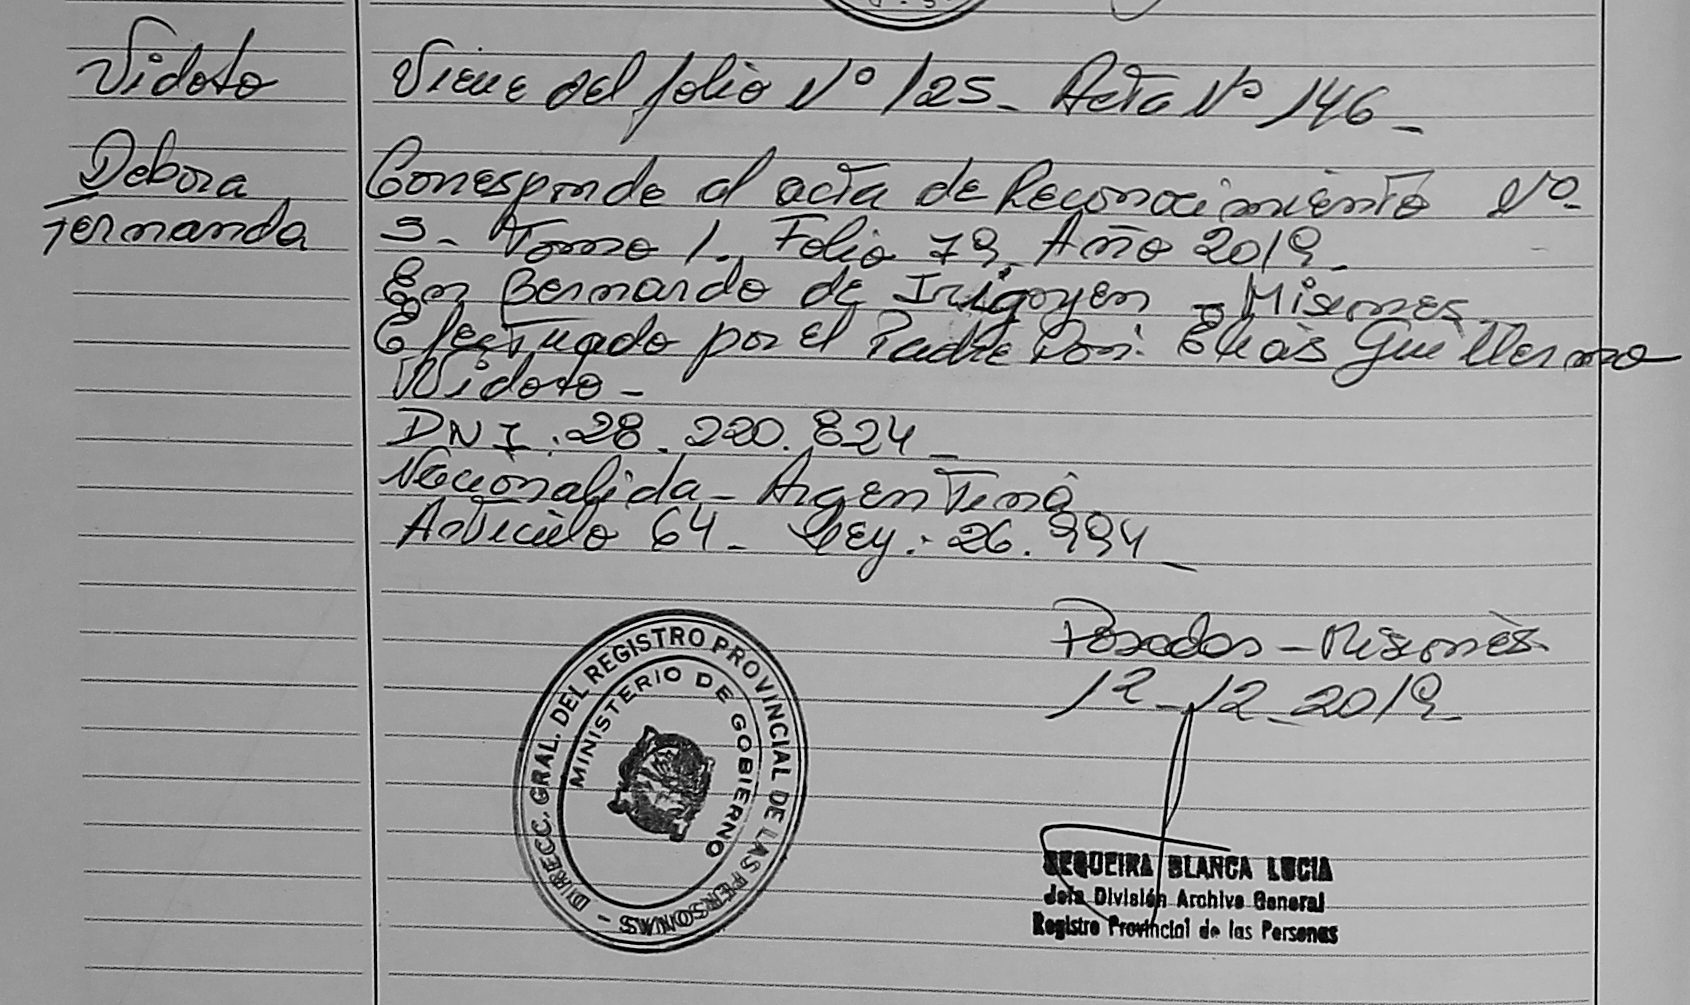 Vidoto
Debora
Fernanda
Viene del folio Nº 125 - Acta Nº 146 -
Corresponde al acta de Reconocimiento Nº
3 - Tomo 1. Folio 79 Año 2019 -
En Bernardo de Irigoyen - Misiones
Efectuado por el Padre Don: Elias Guillermo
Vidoto -
DNI: 28.220.824 -
Nacionalida - Argentina
Articulo 64 - Ley: 26.994 -
Posadas - Misiones
12 - 12 - 2019
DIRECC. GRAL. DEL REGISTRO PROVINCIAL DE LAS PERSONAS -
MINISTERIO DE GOBIERNO
SEQUEIRA BLANCA LUCIA
Jefa División Archivo General
Registro Provincial de las Personas